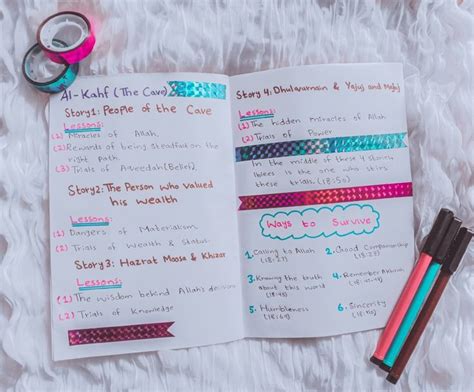 Al-Kahf (The Cave)
Story1: People of the Cave
Lessons:
(1) Miracles of Allah.
(2) Rewards of being steadfast on the
right path.
(3) Trials of Aqeedah (Belief)
Story2: The Person who valued
his wealth
Lessons:
(1) Dangers of Materialism
(2) Trials of Wealth & Status.
Story3: Hazrat Moosa & Khizar
Lessons:
(1) The wisdom behind Allah's decision
(2) Trials of Knowledge
Story 4: Dhulqarnain & Yajuj and Majuj
Lessons:
(1) The hidden miracles of Allah
(2) Trials of Power
In the middle of these 4 stories
Iblees is the one who stirs
these trials. (18:50)
Ways to Survive
1. Calling to Allah
(18:27)
2. Good Companionship
3. Knowing the truth
about this world
4. Remember Akhirah
5. Humbleness
(18:69)
6. Sincerity